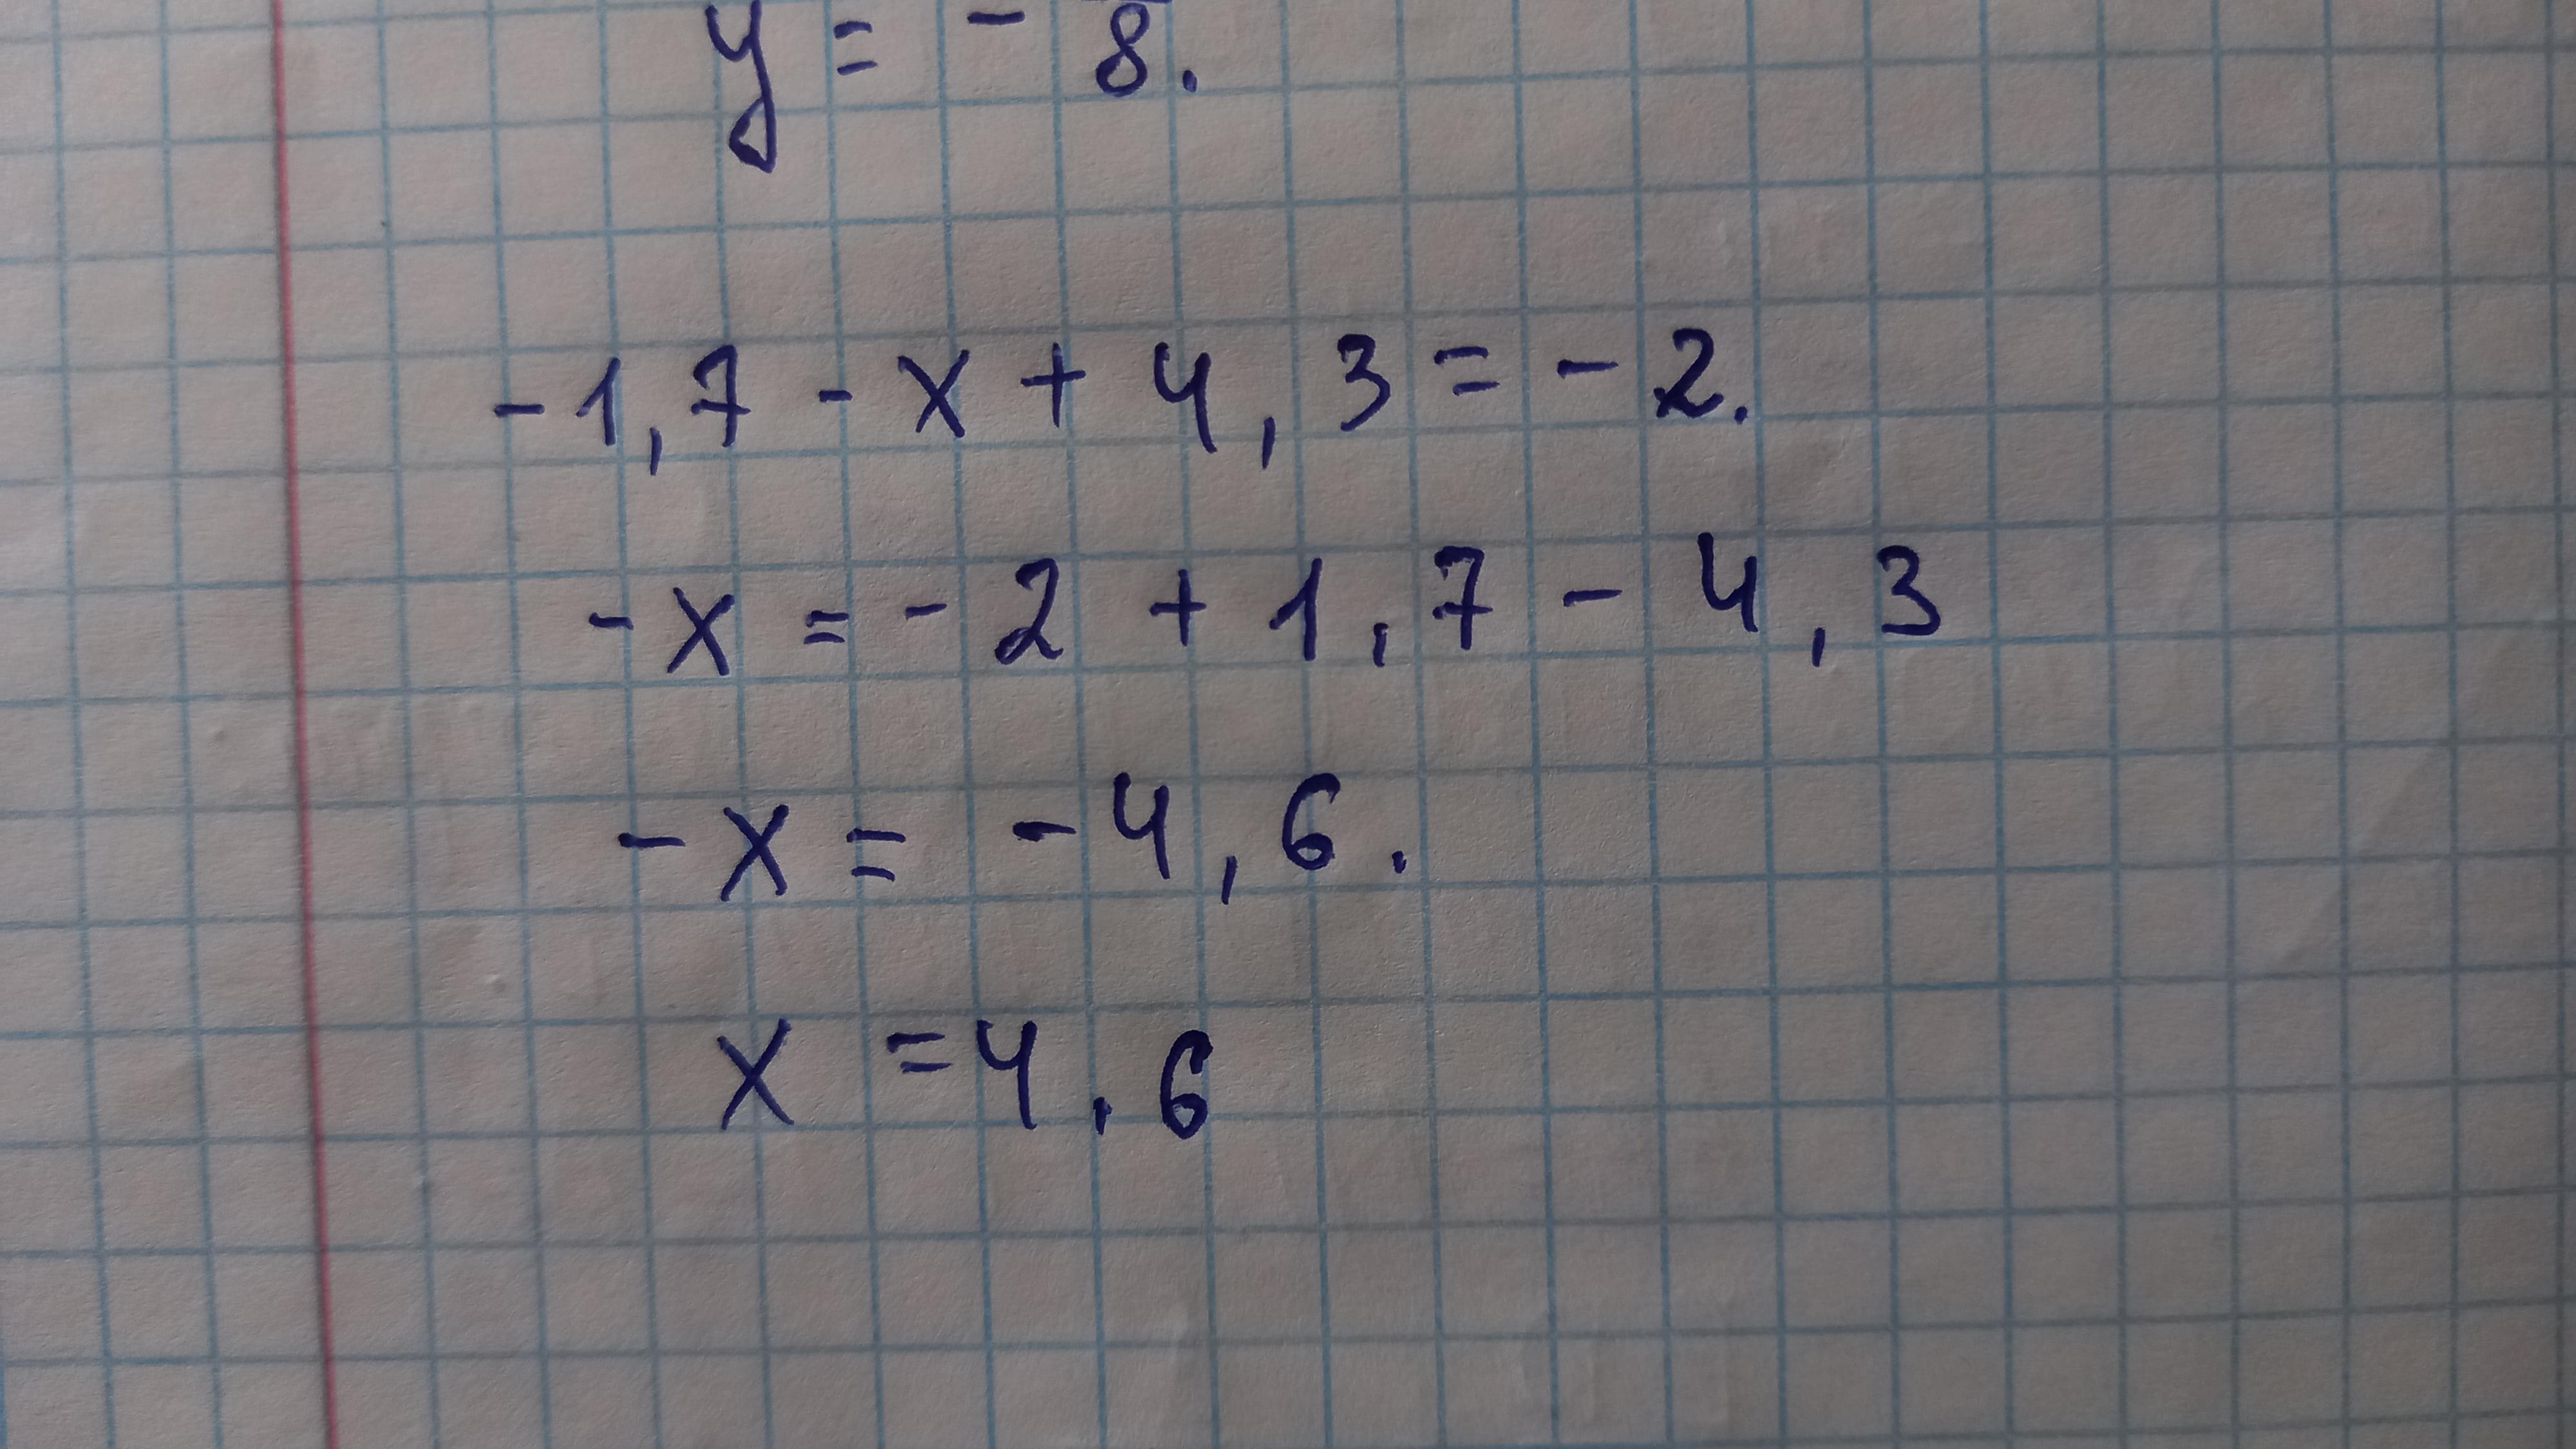 y = - 8.
-1,7 - x + 4,3 = - 2.
- x = - 2 + 1,7 - 4,3
- x = - 4,6.
x = 4,6